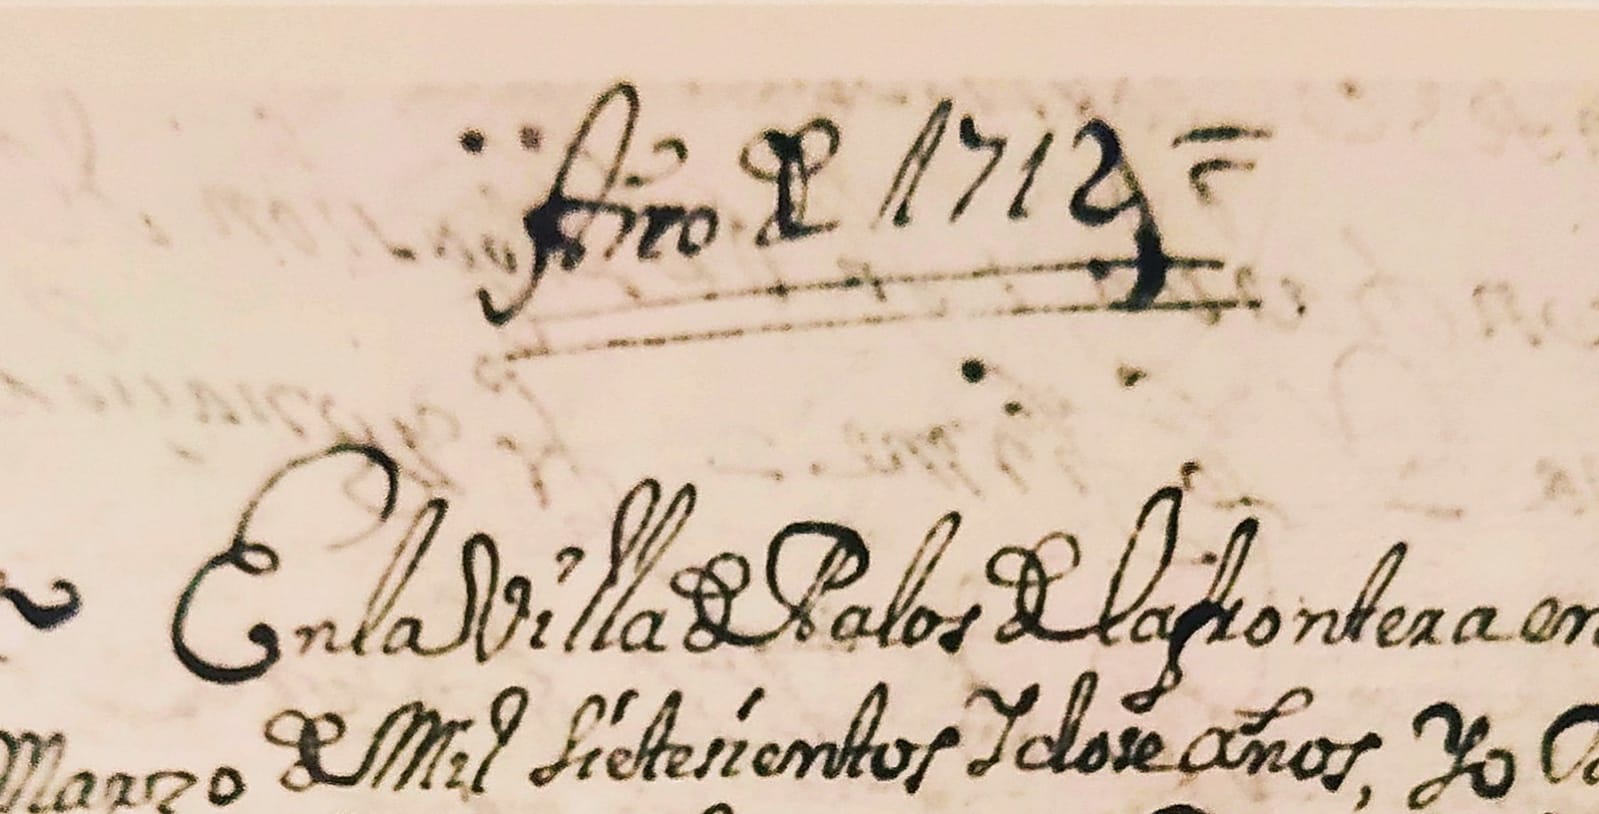 Año de 1712 =
En la Villa de Palos de la frontera en
Marzo de Mil sietesientos Y dose años, Yo